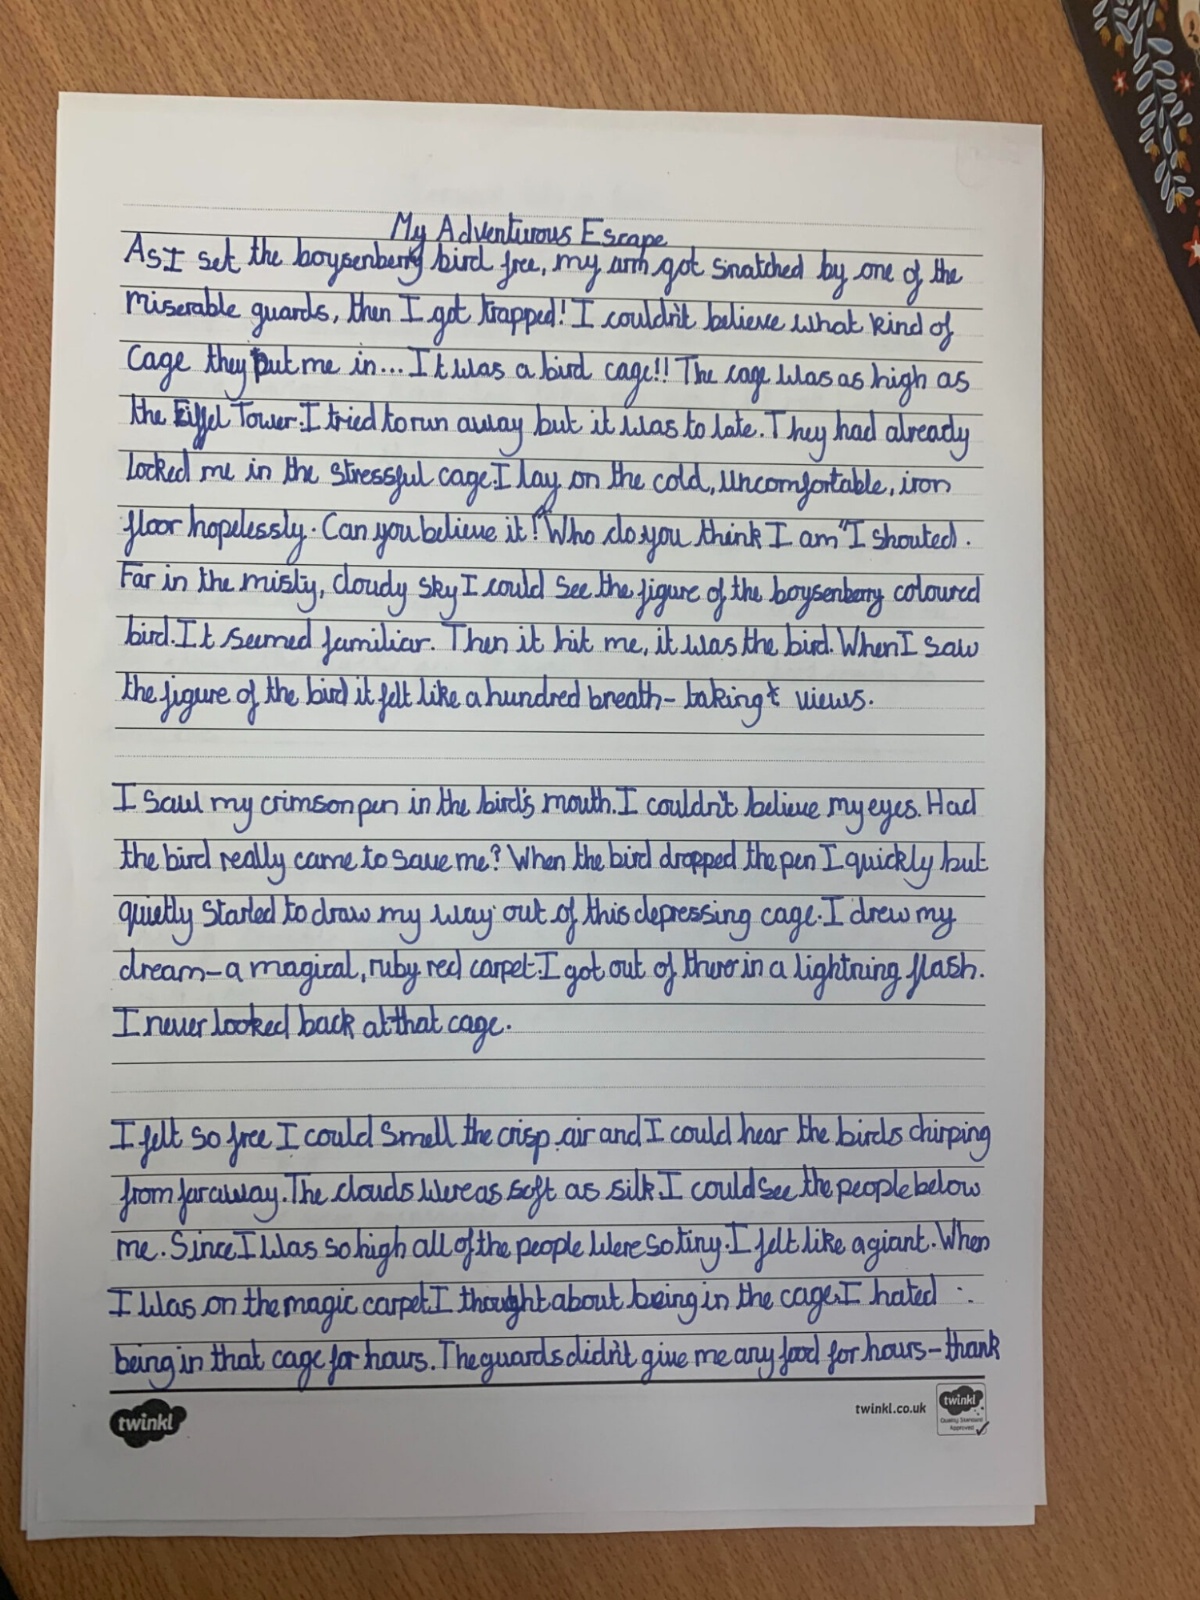 My Adventurous Escape
As I set the boysenberry bird free, my arm got snatched by one of the
miserable guards, then I got trapped! I couldn't believe what kind of
cage they put me in... It was a bird cage!! The cage was as high as
the Eiffel Tower. I tried to run away but it was to late. They had already
locked me in the stressful cage. I lay on the cold, uncomfortable, iron
floor hopelessly. Can you believe it! "Who do you think I am" I shouted.
Far in the misty, cloudy sky I could see the figure of the boysenberry coloured
bird. It seemed familiar. Then it hit me, it was the bird. When I saw
the figure of the bird it felt like a hundred breath-taking views.
I saw my crimson pen in the bird's mouth. I couldn't believe my eyes. Had
the bird really came to save me? When the bird dropped the pen I quickly but
quietly started to draw my way out of this depressing cage. I drew my
dream-a magical, ruby red carpet. I got out of there in a lightning flash.
I never looked back at that cage.
I felt so free I could smell the crisp air and I could hear the birds chirping
from far away. The clouds were as soft as silk. I could see the people below
me. Since I was so high all of the people were so tiny. I felt like a giant. When
I was on the magic carpet I thought about being in the cage. I hated
being in that cage for hours. The guards didn't give me any food for hours-thank
twinkl
twinkl.co.uk
twinkl
Quality Standard
Approved